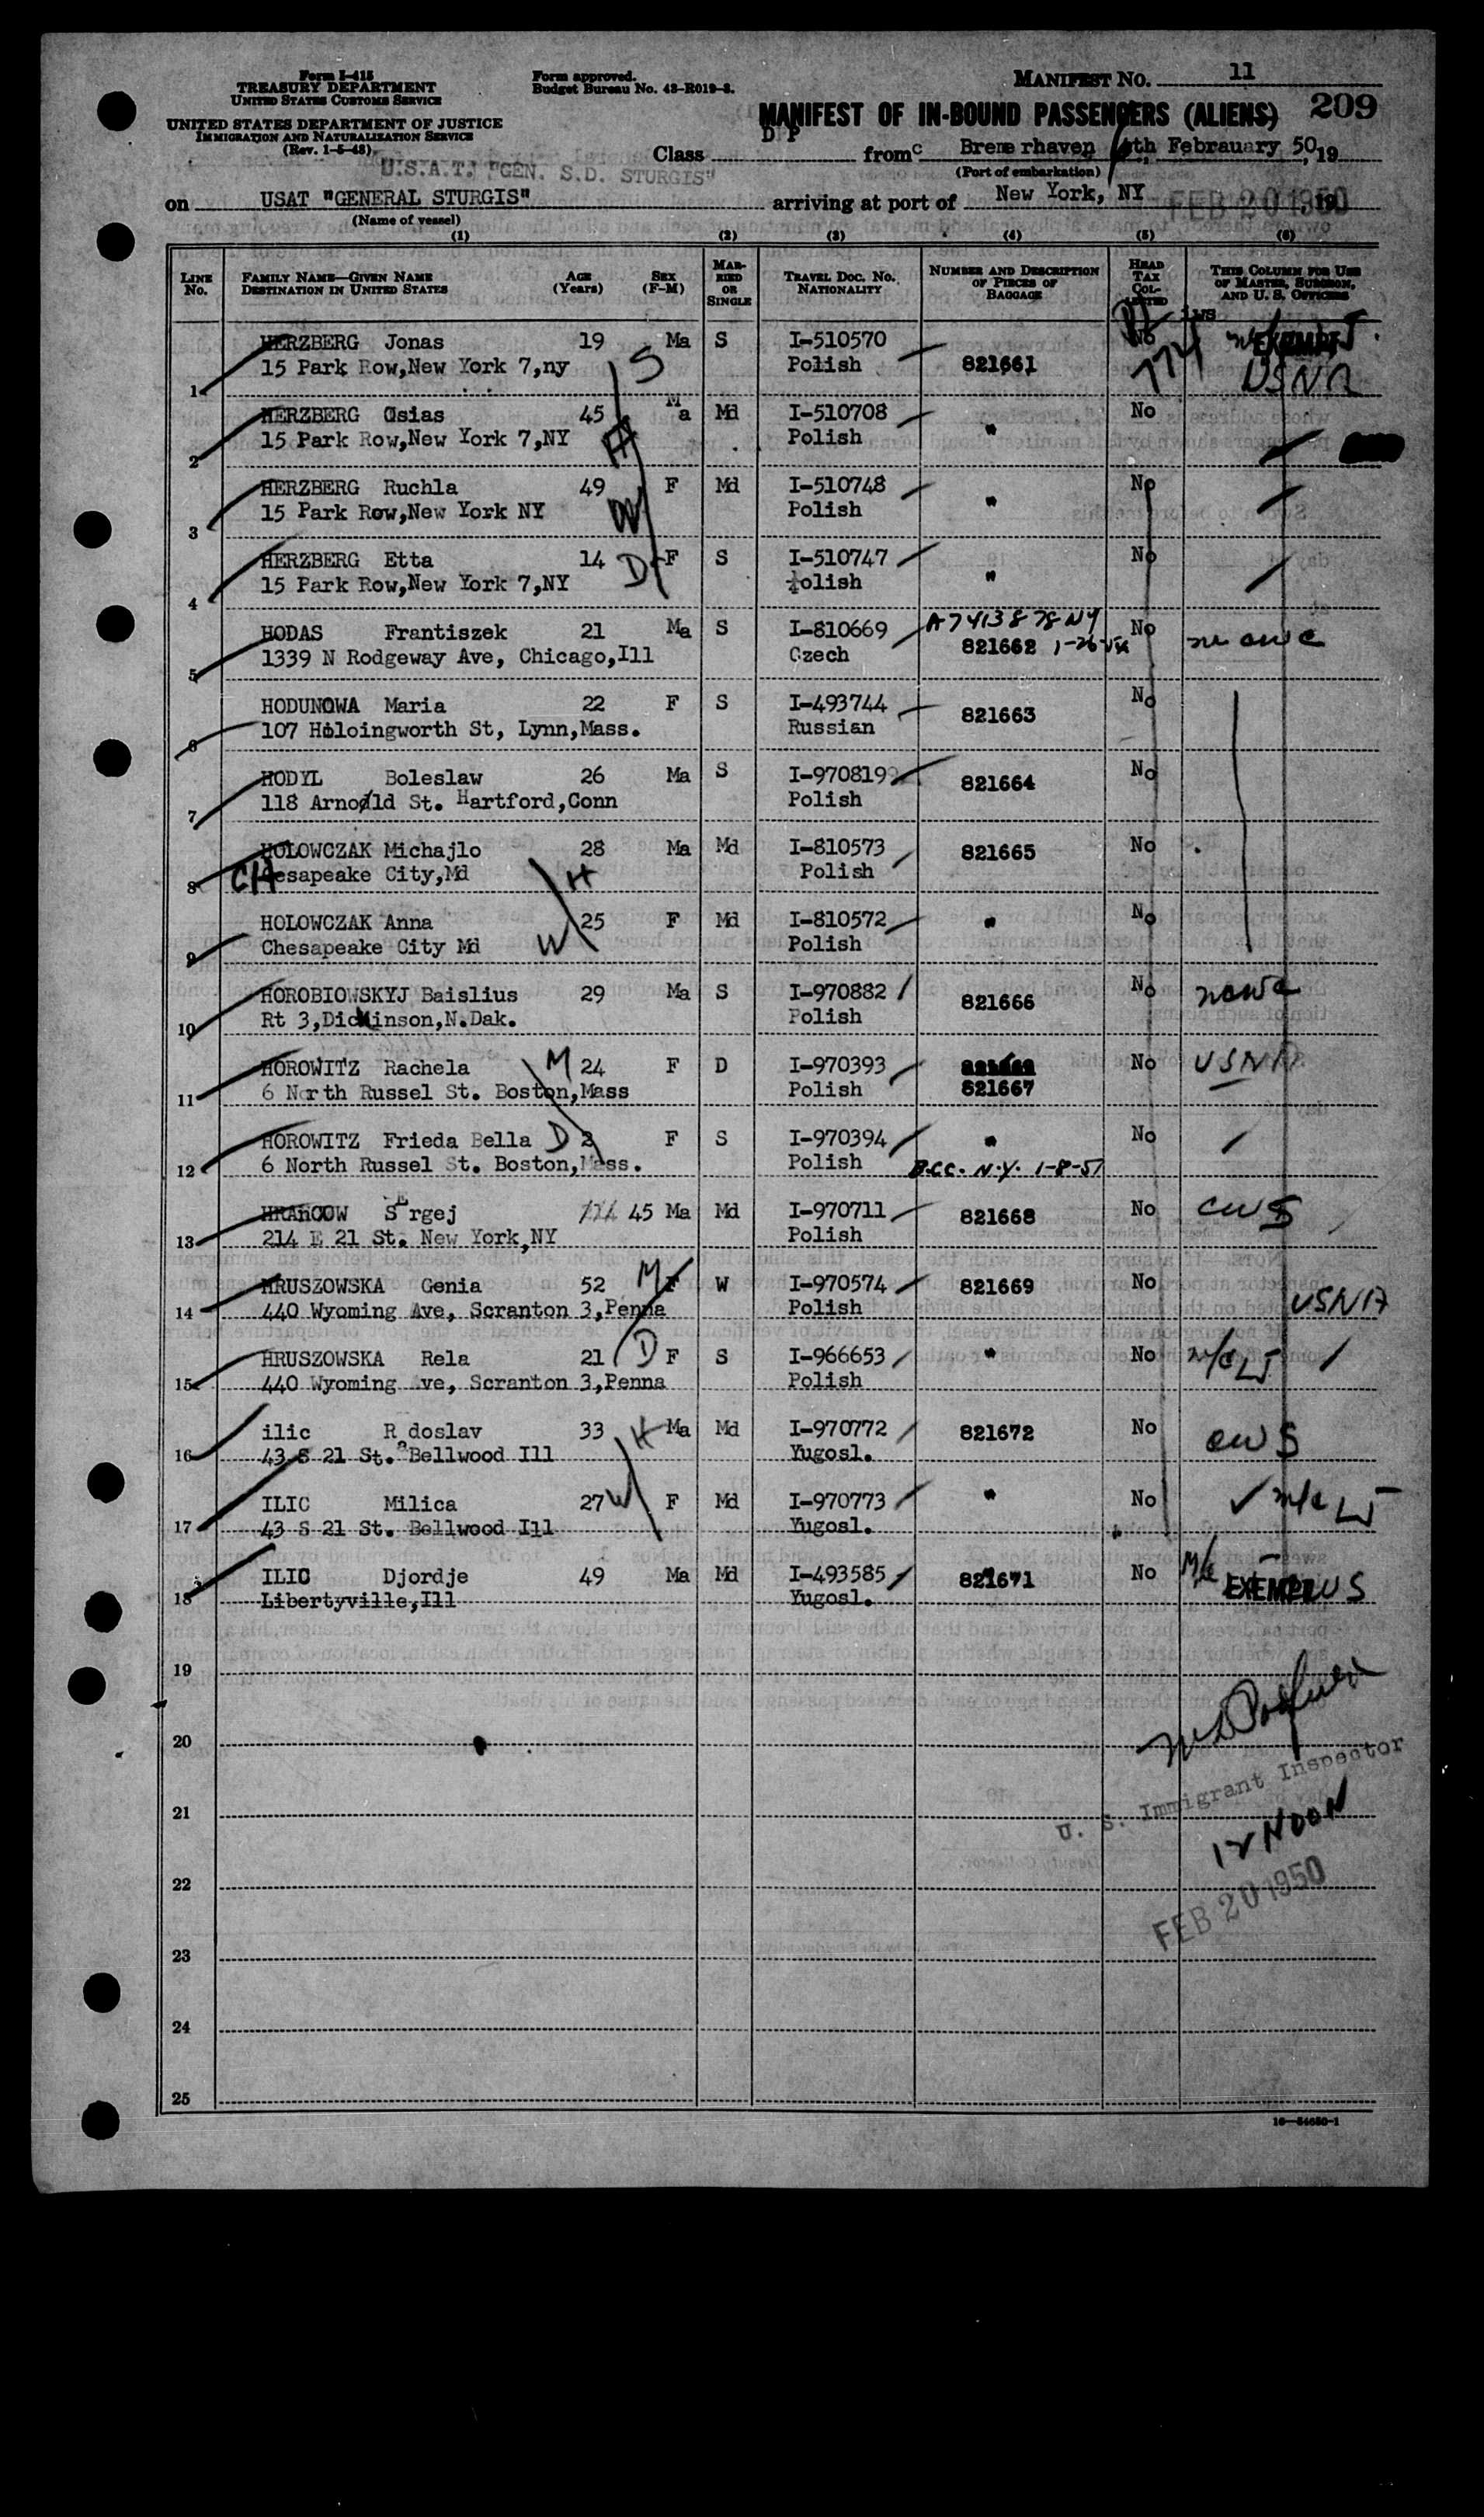 Form I-415
TREASURY DEPARTMENT
UNITED STATES CUSTOMS SERVICE
UNITED STATES DEPARTMENT OF JUSTICE
IMMIGRATION AND NATURALIZATION SERVICE
(Rev. 1-5-48)
Form approved.
Budget Bureau No. 43-R019-3.
MANIFEST NO. 11
MANIFEST OF IN-BOUND PASSENGERS (ALIENS) 209
Class D P from c Breme rhaven th Febrauary 50, 19
(Port of embarkation)
U.S.A.T. "GEN. S.D. STURGIS"
on USAT "GENERAL STURGIS" arriving at port of New York, NY FEB 20 1950, 19
(Name of vessel)
(1) (2) (3) (4) (5) (6)
LINE No. FAMILY NAME—GIVEN NAME DESTINATION IN UNITED STATES AGE (Years) SEX (F-M) MARRIED OR SINGLE TRAVEL DOC. NO. NATIONALITY NUMBER AND DESCRIPTION OF PIECES OF BAGGAGE HEAD TAX COLLECTED THIS COLUMN FOR USE OF MASTER, SURGEON, AND U. S. OFFICERS
HERZBERG Jonas 19 Ma S I-510570 No EXEMPT
1 15 Park Row,New York 7,ny S Polish 821661 USNA
HERZBERG Osias 45 Ma Md I-510708 No
2 15 Park Row,New York 7,NY H Polish "
HERZBERG Ruchla 49 F Md I-510748 No
3 15 Park Row,New York NY W Polish "
HERZBERG Etta 14 F S I-510747 No
4 15 Park Row,New York 7,NY D Polish "
HODAS Frantiszek 21 Ma S I-810669 A7413878 NY No
5 1339 N Rodgeway Ave, Chicago,Ill Czech 821662
HODUNOWA Maria 22 F S I-493744 No
6 107 Holoingworth St, Lynn,Mass. Russian 821663
HODYL Boleslaw 26 Ma S I-970819 No
7 118 Arnold St. Hartford,Conn Polish 821664
HOLOWCZAK Michajlo 28 Ma Md I-810573 821665 No
8 CHesapeake City,Md H Polish
HOLOWCZAK Anna 25 F Md I-810572 " No
9 Chesapeake City Md W Polish
HOROBIOWSKYJ Baislius 29 Ma S I-970882 821666 No
10 Rt 3,Dickinson,N.Dak. Polish
HOROWITZ Rachela M 24 F D I-970393 No USNA
11 6 North Russel St. Boston,Mass Polish 821667
HOROWITZ Frieda Bella D 2 F S I-970394 " No
12 6 North Russel St. Boston,Mass. Polish B.C.C. N.Y. 1-8-51
HRAHOOW SErgej 45 Ma Md I-970711 821668 No CWS
13 214 E 21 St. New York,NY Polish
HRUSZOWSKA Genia 52 M F W I-970574 821669 No
14 440 Wyoming Ave, Scranton 3,Penna Polish USNA
HRUSZOWSKA Rela 21 D F S I-966653 " No
15 440 Wyoming Ave, Scranton 3,Penna Polish
ilic Radoslav 33 H Ma Md I-970772 821672 No CWS
16 43 S 21 St. Bellwood Ill Yugosl.
ILIC Milica 27 W F Md I-970773 " No
17 43 S 21 St. Bellwood Ill Yugosl.
ILIC Djordje 49 Ma Md I-493585 821671 No EXEMPT
18 Libertyville,Ill Yugosl.
19
20
21 U. S. Immigrant Inspector
12 NOON
22 FEB 20 1950
23
24
25